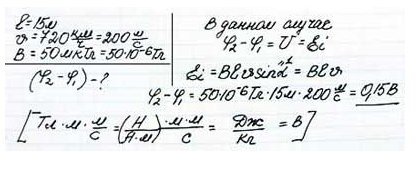 ℓ = 15м
v = 720 км/ч = 200 м/с
B = 50мкТл = 50·10⁻⁶Тл
(φ₂-φ₁) - ?
В данном случае
φ₂ - φ₁ = U = Ɛi
Ɛi = Bℓv sinα = Bℓv
φ₂ - φ₁ = 50·10⁻⁶Тл·15м·200 м/с = 0,15В
[Тл·м·м/с = (Н/А·м)·м·м/с = Дж/Кл = В]